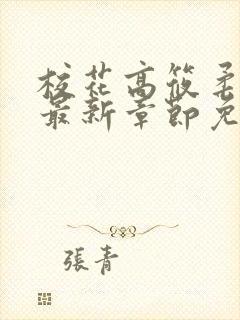 校花高筱柔
最新章節免
張青